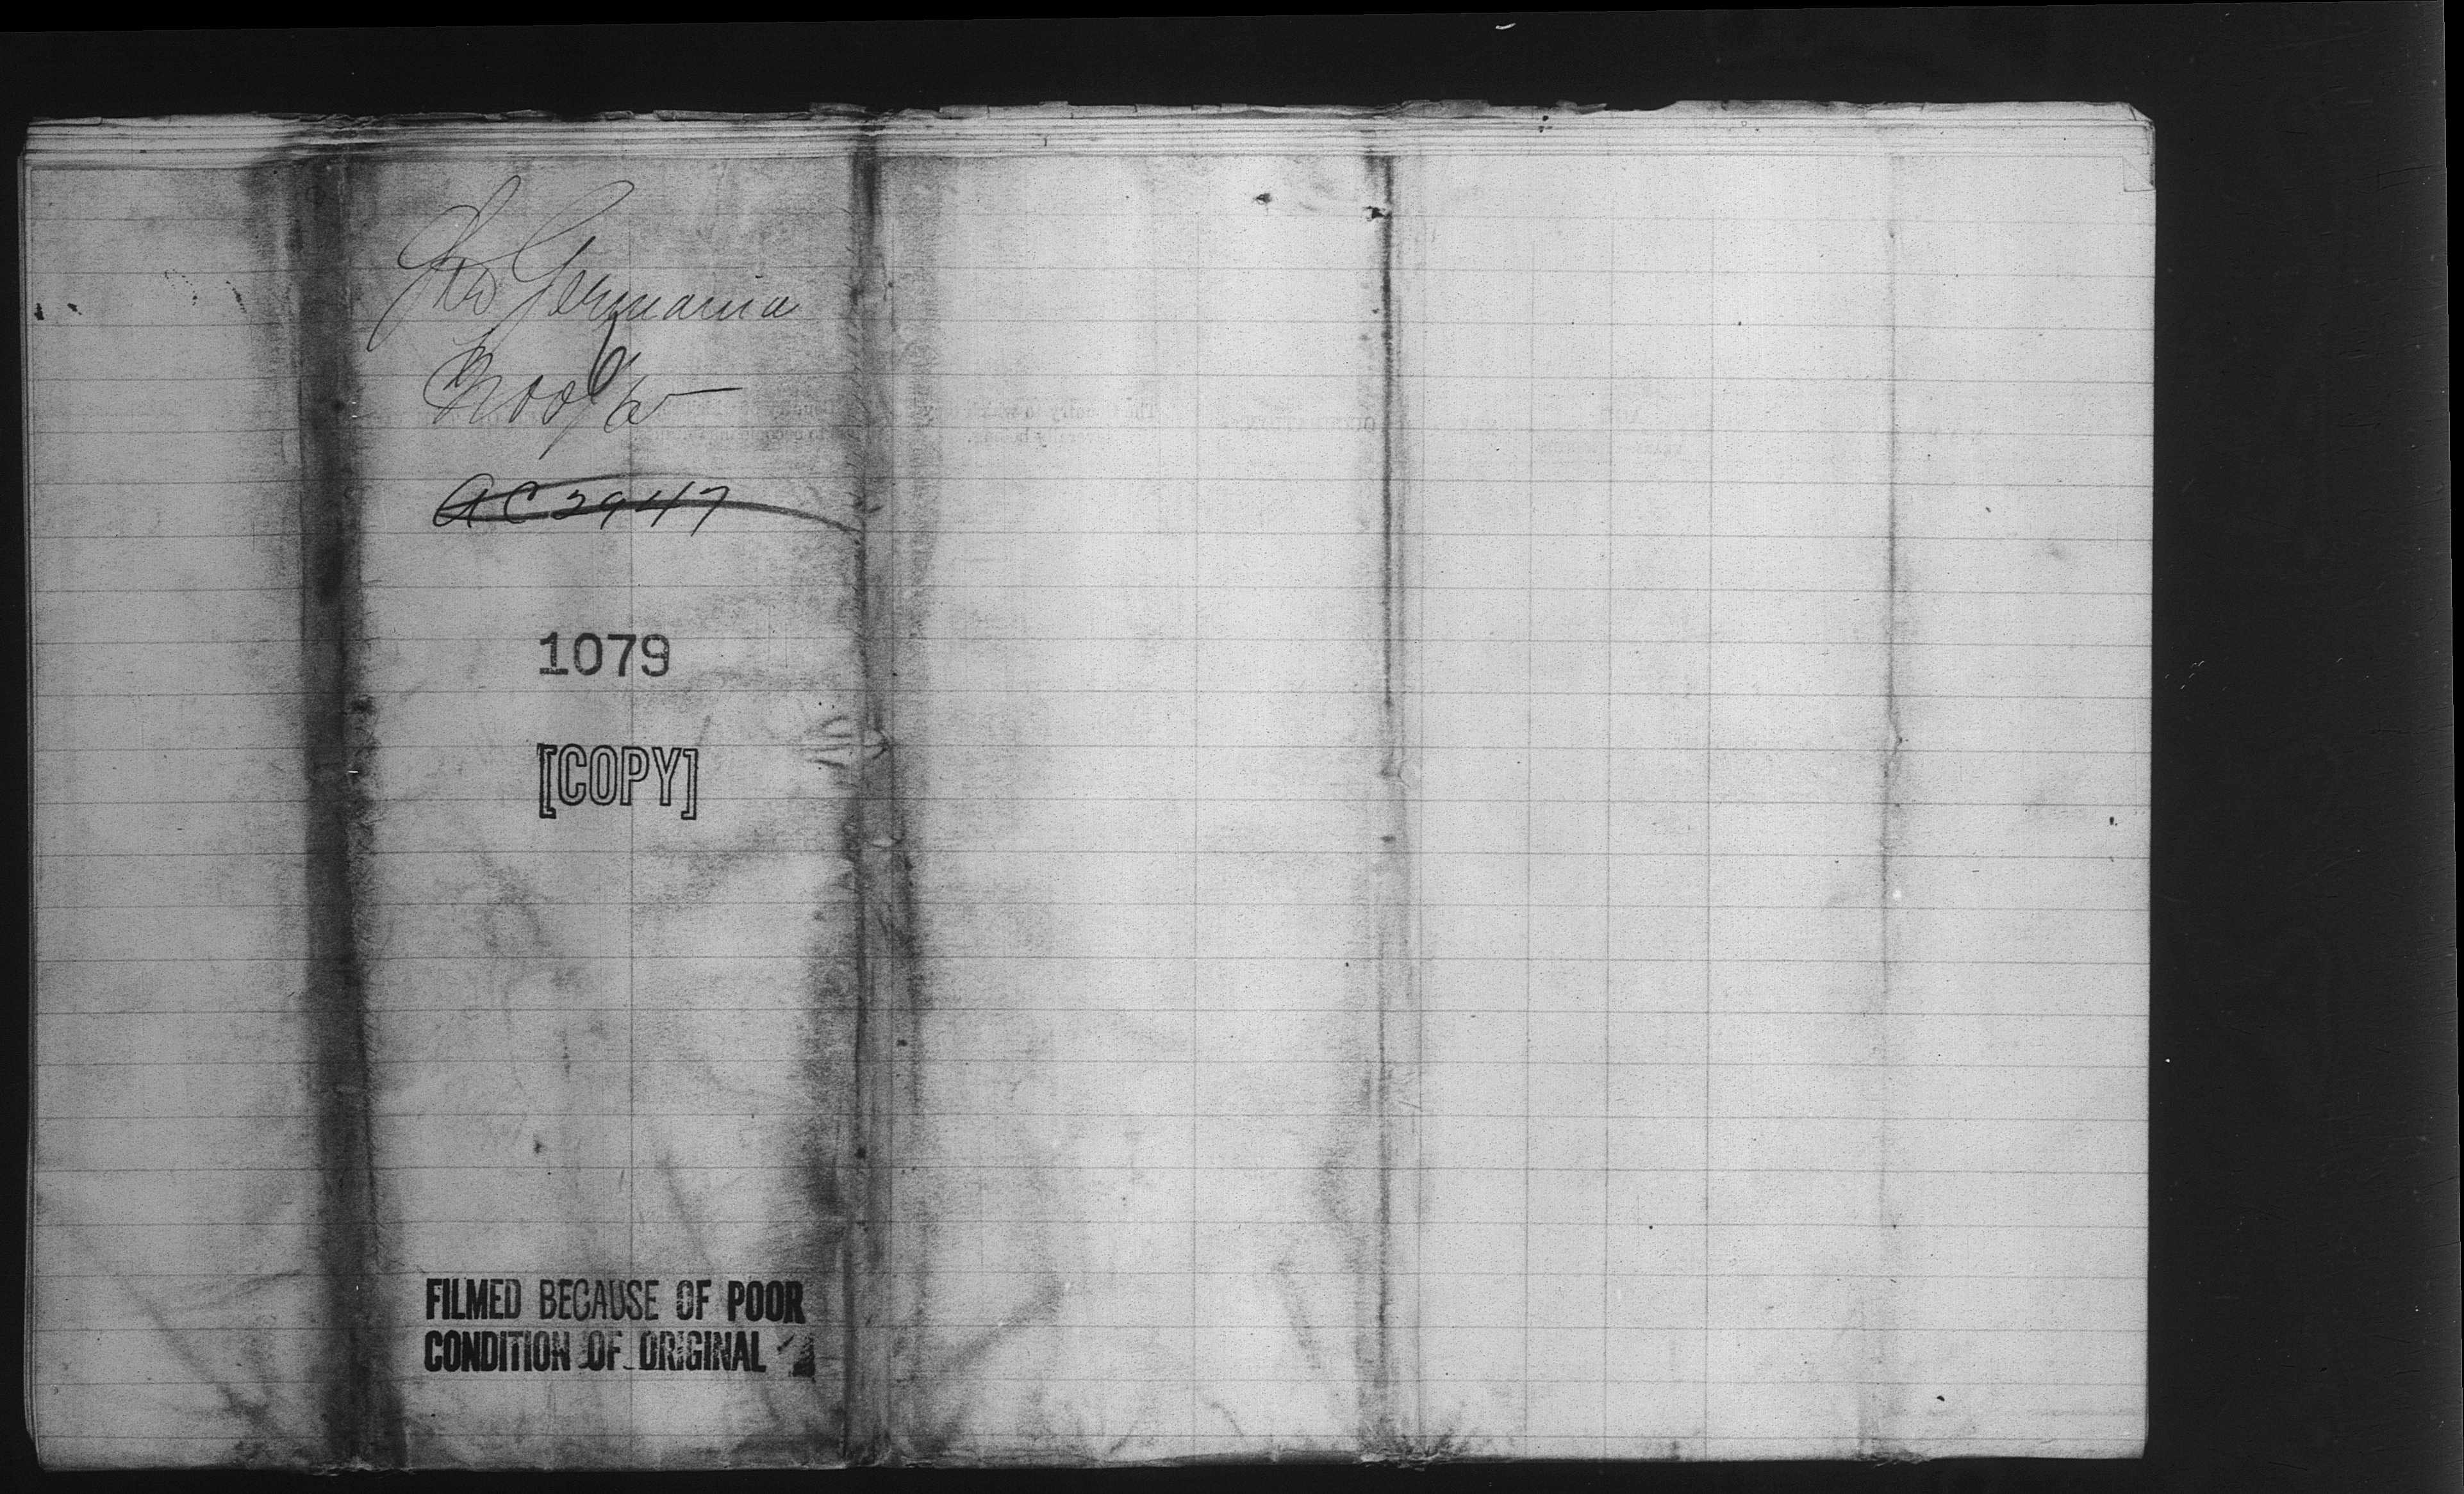 Germania
AC 2947
1079
[COPY]
FILMED BECAUSE OF POOR
CONDITION OF ORIGINAL